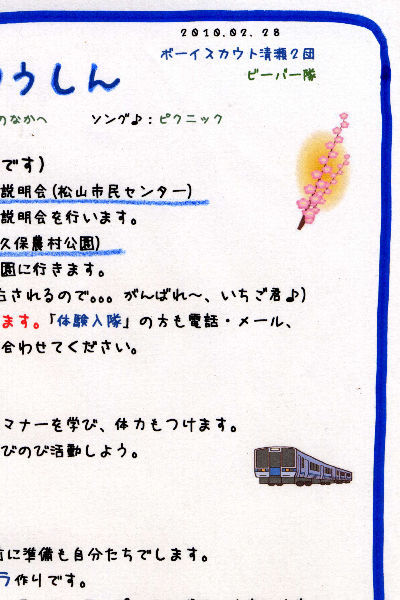 2010.02.28
ボーイスカウト清瀬2団
ビーバー隊
うしん
のなかへ ソング♪：ピクニック
です)
説明会(松山市民センター)
説明会を行います。
久保農村公園)
園に行きます。
されるので。。。がんばれ～、いちご君♪)
ます。「体験入隊」の方も電話・メール、
合わせてください。
マナーを学び、体力もつけます。
びのび活動しよう。
に準備も自分たちでします。
ラ作りです。